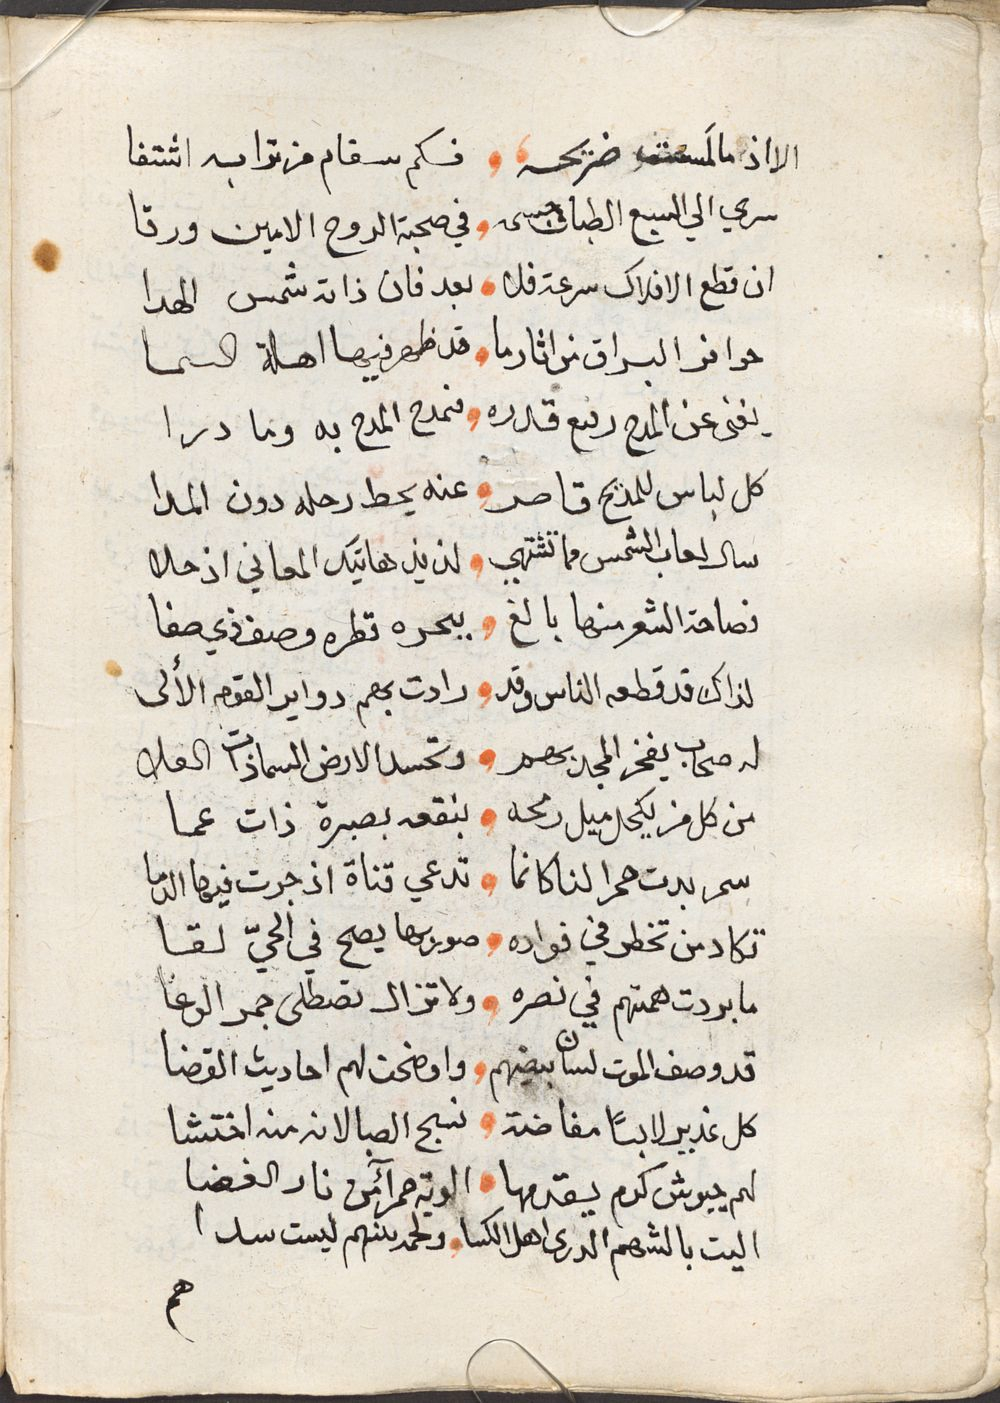 الا اذ ما ضريحه فكم سقام من ترابه اشتفا
سري الي السبع الطباق وفي صحبة الروح الامين ورقا
ان قطع الافلاك سرعة فلا بعد فان ذاته شمس الهدا
حوافر البراق من اثارما قد ظهر فيها اهلة السما
يغني عن المدح رفيع قدره فنمدح المدح به وما درا
كل لباس للمديح قاصر عنه يحط رحله دون المدا
سال لعاب الشمس مما تشتهي لذيذ هاتيك المعاني اذ حلا
فصاحة الشعر منها بالغ ببحره قطره وصف ذي صفا
لذاك قد قطعه الناس وقد دارت بهم دواير القوم الألى
له صحاب يفخر المجد بهم وتحسد الارض السما ذات العلا
من كل من يكحل ميل رمحه بنقعه بصيرة ذات عما
سمر بدت حمرا لنا كانما تدعي قناة اذ جرت فيها الدما
تكاد من تخطر في فواده صورتها يصح في الحيّ لقا
ما بردت همتهم في نصره ولا تزال تصطلى جمر الوغا
قد وصف الموت لسان بيضهم واوضحت لهم احاديث القضا
كل غدير لابسًا مفاضة نسج الصبا لانه منه اختشا
لهم جيوش كرم يقدمها الوية حمرآء من نار الغضا
اليت بالشهم الدرى اهل الكسا ولحمد بينهم ليست سدا
هم